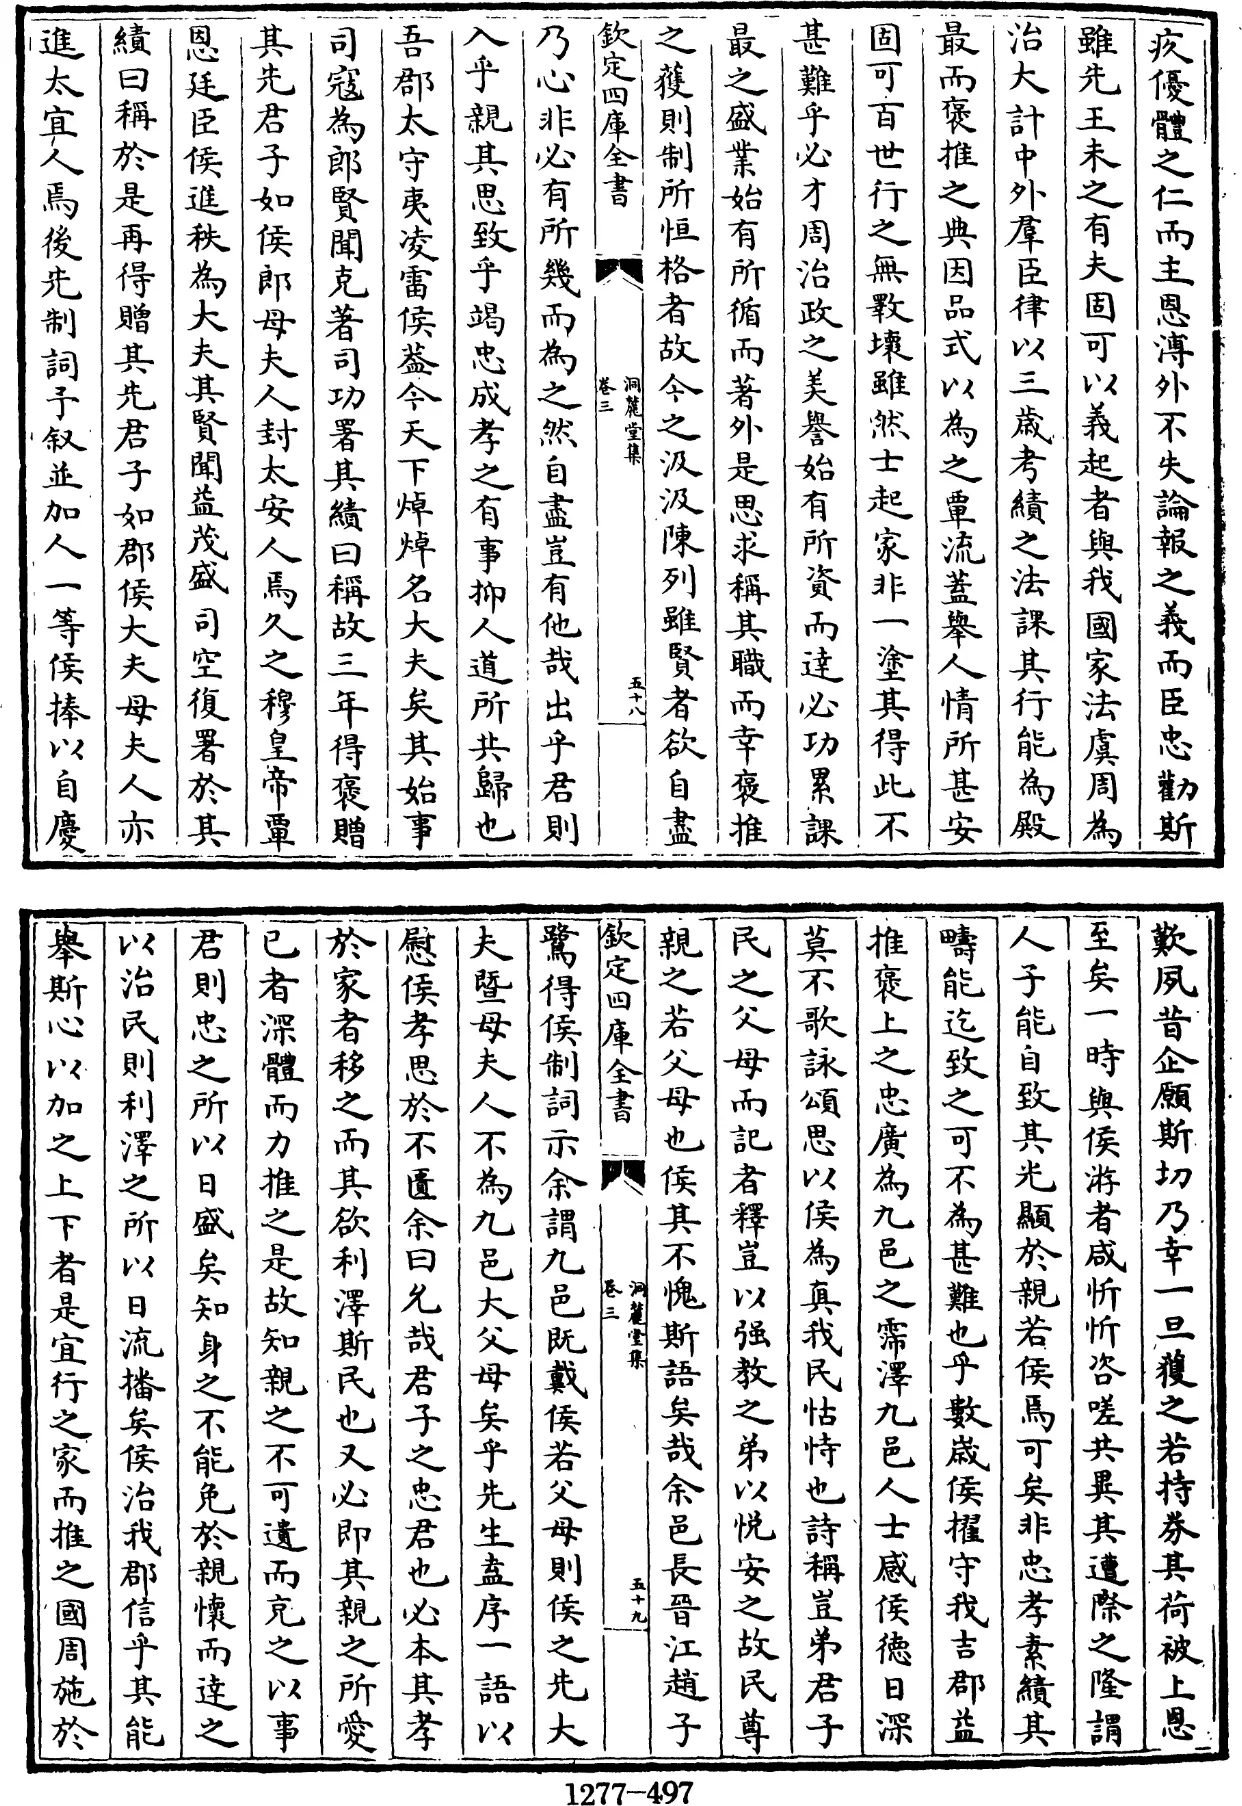 疚優體之仁而主恩溥外不失論報之義而臣忠勸斯
雖先王未之有夫固可以義起者與我國家法虞周為
治大計中外羣臣律以三歳考績之法課其行能為殿
最而褒推之典因品式以為之覃流蓋舉人情所甚安
固可百世行之無斁壞雖然士起家非一塗其得此不
甚難乎必才周治政之美譽始有所資而達必功累課
最之盛業始有所循而著外是思求稱其職而幸褒推
之獲則制所恒格者故今之汲汲陳列雖賢者欲自盡
欽定四庫全書
洞麓堂集
卷三
五十八
乃心非必有所幾而為之然自盡豈有他哉出乎君則
入乎親其思致乎竭忠成孝之有事抑人道所共歸也
吾郡太守夷凌雷侯葢今天下焯焯名大夫矣其始事
司寇為郎賢聞克著司功署其績曰稱故三年得褒贈
其先君子如侯郎母夫人封太安人焉久之穆皇帝覃
恩廷臣侯進秩為大夫其賢聞益茂盛司空復署於其
績曰稱於是再得贈其先君子如郡侯大夫母夫人亦
進太宜人焉後先制詞予叙並加人一等侯捧以自慶
歎夙昔企願斯切乃幸一旦獲之若持券其荷被上恩
至矣一時與侯游者咸忻忻咨嗟共異其遭際之隆謂
人子能自致其光顯於親若侯焉可矣非忠孝素績其
疇能迄致之可不為甚難也乎數歳侯擢守我吉郡益
推褒上之忠廣為九邑之霈澤九邑人士感侯徳日深
莫不歌詠頌思以侯為真我民怙恃也詩稱豈弟君子
民之父母而記者釋豈以强教之弟以悦安之故民尊
親之若父母也侯其不愧斯語矣哉余邑長晉江趙子
欽定四庫全書
洞麓堂集
卷三
五十九
鷺得侯制詞示余謂九邑既戴侯若父母則侯之先大
夫暨母夫人不為九邑大父母矣乎先生盍序一語以
慰侯孝思於不匱余曰允哉君子之忠君也必本其孝
於家者移之而其欲利澤斯民也又必即其親之所愛
已者深體而力推之是故知親之不可遺而克之以事
君則忠之所以日盛矣知身之不能免於親懷而達之
以治民則利澤之所以日流播矣侯治我郡信乎其能
舉斯心以加之上下者是宜行之家而推之國周施於
1277-497